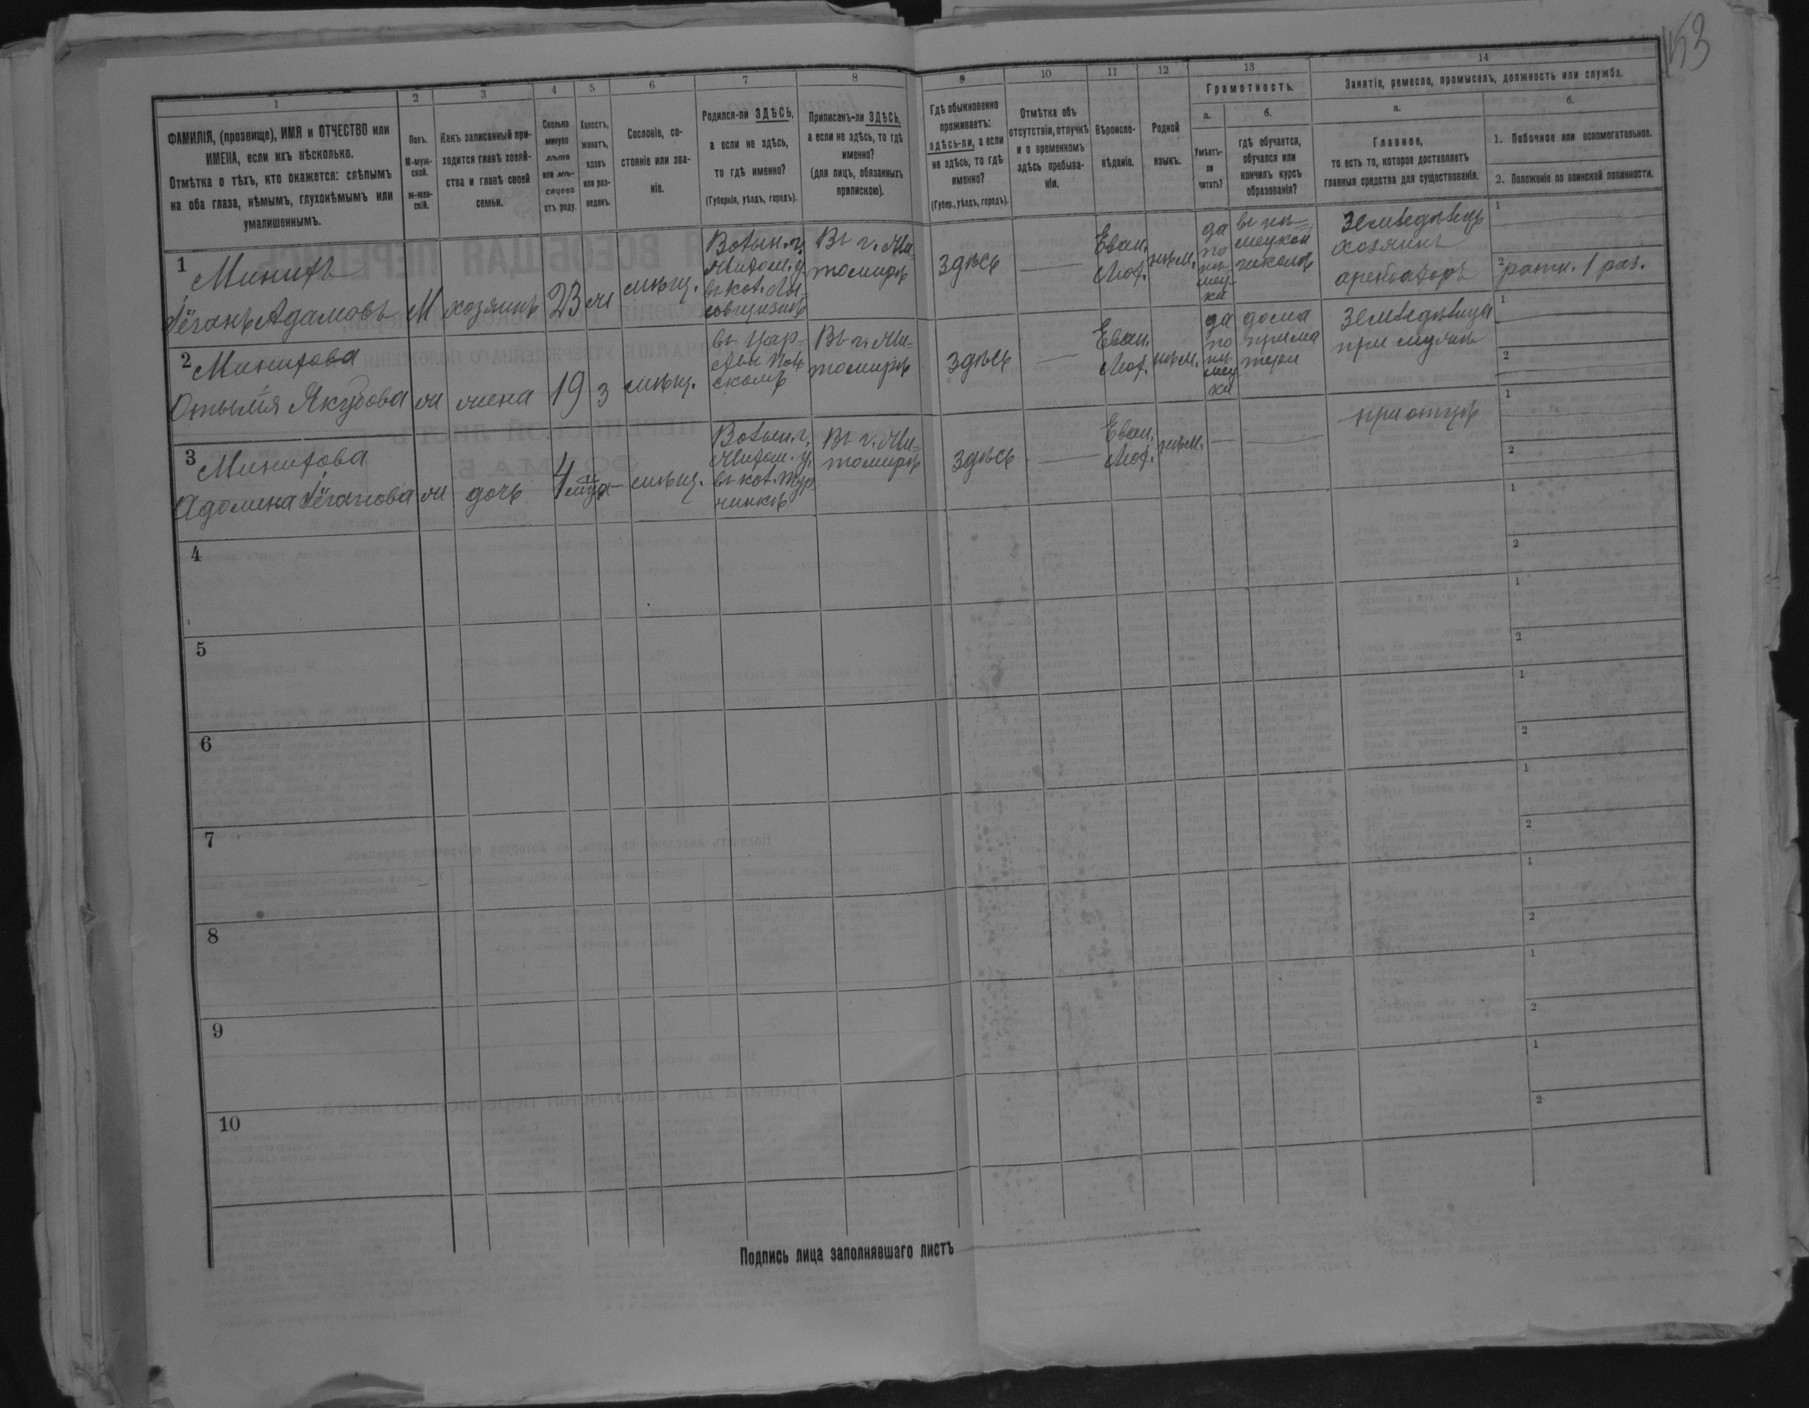 153
1 2 3 4 5 6 7 8 9 10 11 12 13 14
ФАМИЛІЯ, (прозвище), ИМЯ и ОТЧЕСТВО или
ИМЕНА, если ихъ нѣсколько.
Отмѣтка о тѣхъ, кто окажется: слѣпымъ
на оба глаза, нѣмымъ, глухонѣмымъ или
умалишеннымъ.
Полъ.
М-муж-
ской.
ж-жен-
скій.
Какъ записанный при-
ходится главѣ хозяй-
ства и главѣ своей
семьи.
Сколько
минуло
лѣтъ
или мѣ-
сяцевъ
отъ роду.
Холостъ,
женатъ,
вдовъ
или раз-
веденъ.
Сословіе, со-
стояніе или зва-
ніе.
Родился-ли ЗДѢСЬ,
а если не здѣсь,
то гдѣ именно?
(Губернія, уѣздъ, городъ).
Приписанъ-ли ЗДѢСЬ,
а если не здѣсь, то гдѣ
именно?
(для лицъ, обязанныхъ
припискою).
Гдѣ обыкновенно
проживаетъ:
здѣсь-ли, а если
не здѣсь, то гдѣ
именно?
(Губер., уѣздъ, городъ).
Отмѣтка объ
отсутствіи, отлучкѣ
и о временномъ
здѣсь пребыва-
ніи.
Вѣроиспо-
вѣданіе.
Родной
языкъ.
Грамотность.
а.
Умѣетъ-
ли
читать?
б.
гдѣ обучается,
обучался или
кончилъ курсъ
образованія?
Занятіе, ремесло, промыселъ, должность или служба.
а.
Главное,
то есть то, которое доставляетъ
главныя средства для существованія.
б.
1. Побочное или вспомогательное.
2. Положеніе по воинской повинности.
1
Адамовъ
М
хозяинъ
23
ж
мѣщ.
Волын. г.
Житом. у.
въ кол.
Въ г. Жи-
томирѣ
здѣсь
Еван.
Лют.
нѣм.
да
по
нѣ-
мец-
ки
въ нѣ-
мецкой
школѣ
Земледѣлецъ
хозяинъ
арендаторъ
1
2 ратн. 1 раз.
2
Якубова
ж
жена
19
з
мѣщ.
въ Цар-
ствѣ Поль-
скомъ
Въ г. Жи-
томирѣ
здѣсь
Еван.
Лют.
нѣм.
да
по
нѣ-
мец-
ки
дома
при ма
тери
Земледѣлица
при мужѣ
1
2
3
ж
дочь
4
мѣщ.
Волын. г.
Житом. у.
въ кол.
Въ г. Жи-
томирѣ
здѣсь
Еван.
Лют.
нѣм.
при отцѣ
1
2
4
1
2
5
1
2
6
1
2
7
1
2
8
1
2
9
1
2
10
1
2
Подпись лица заполнявшаго листъ